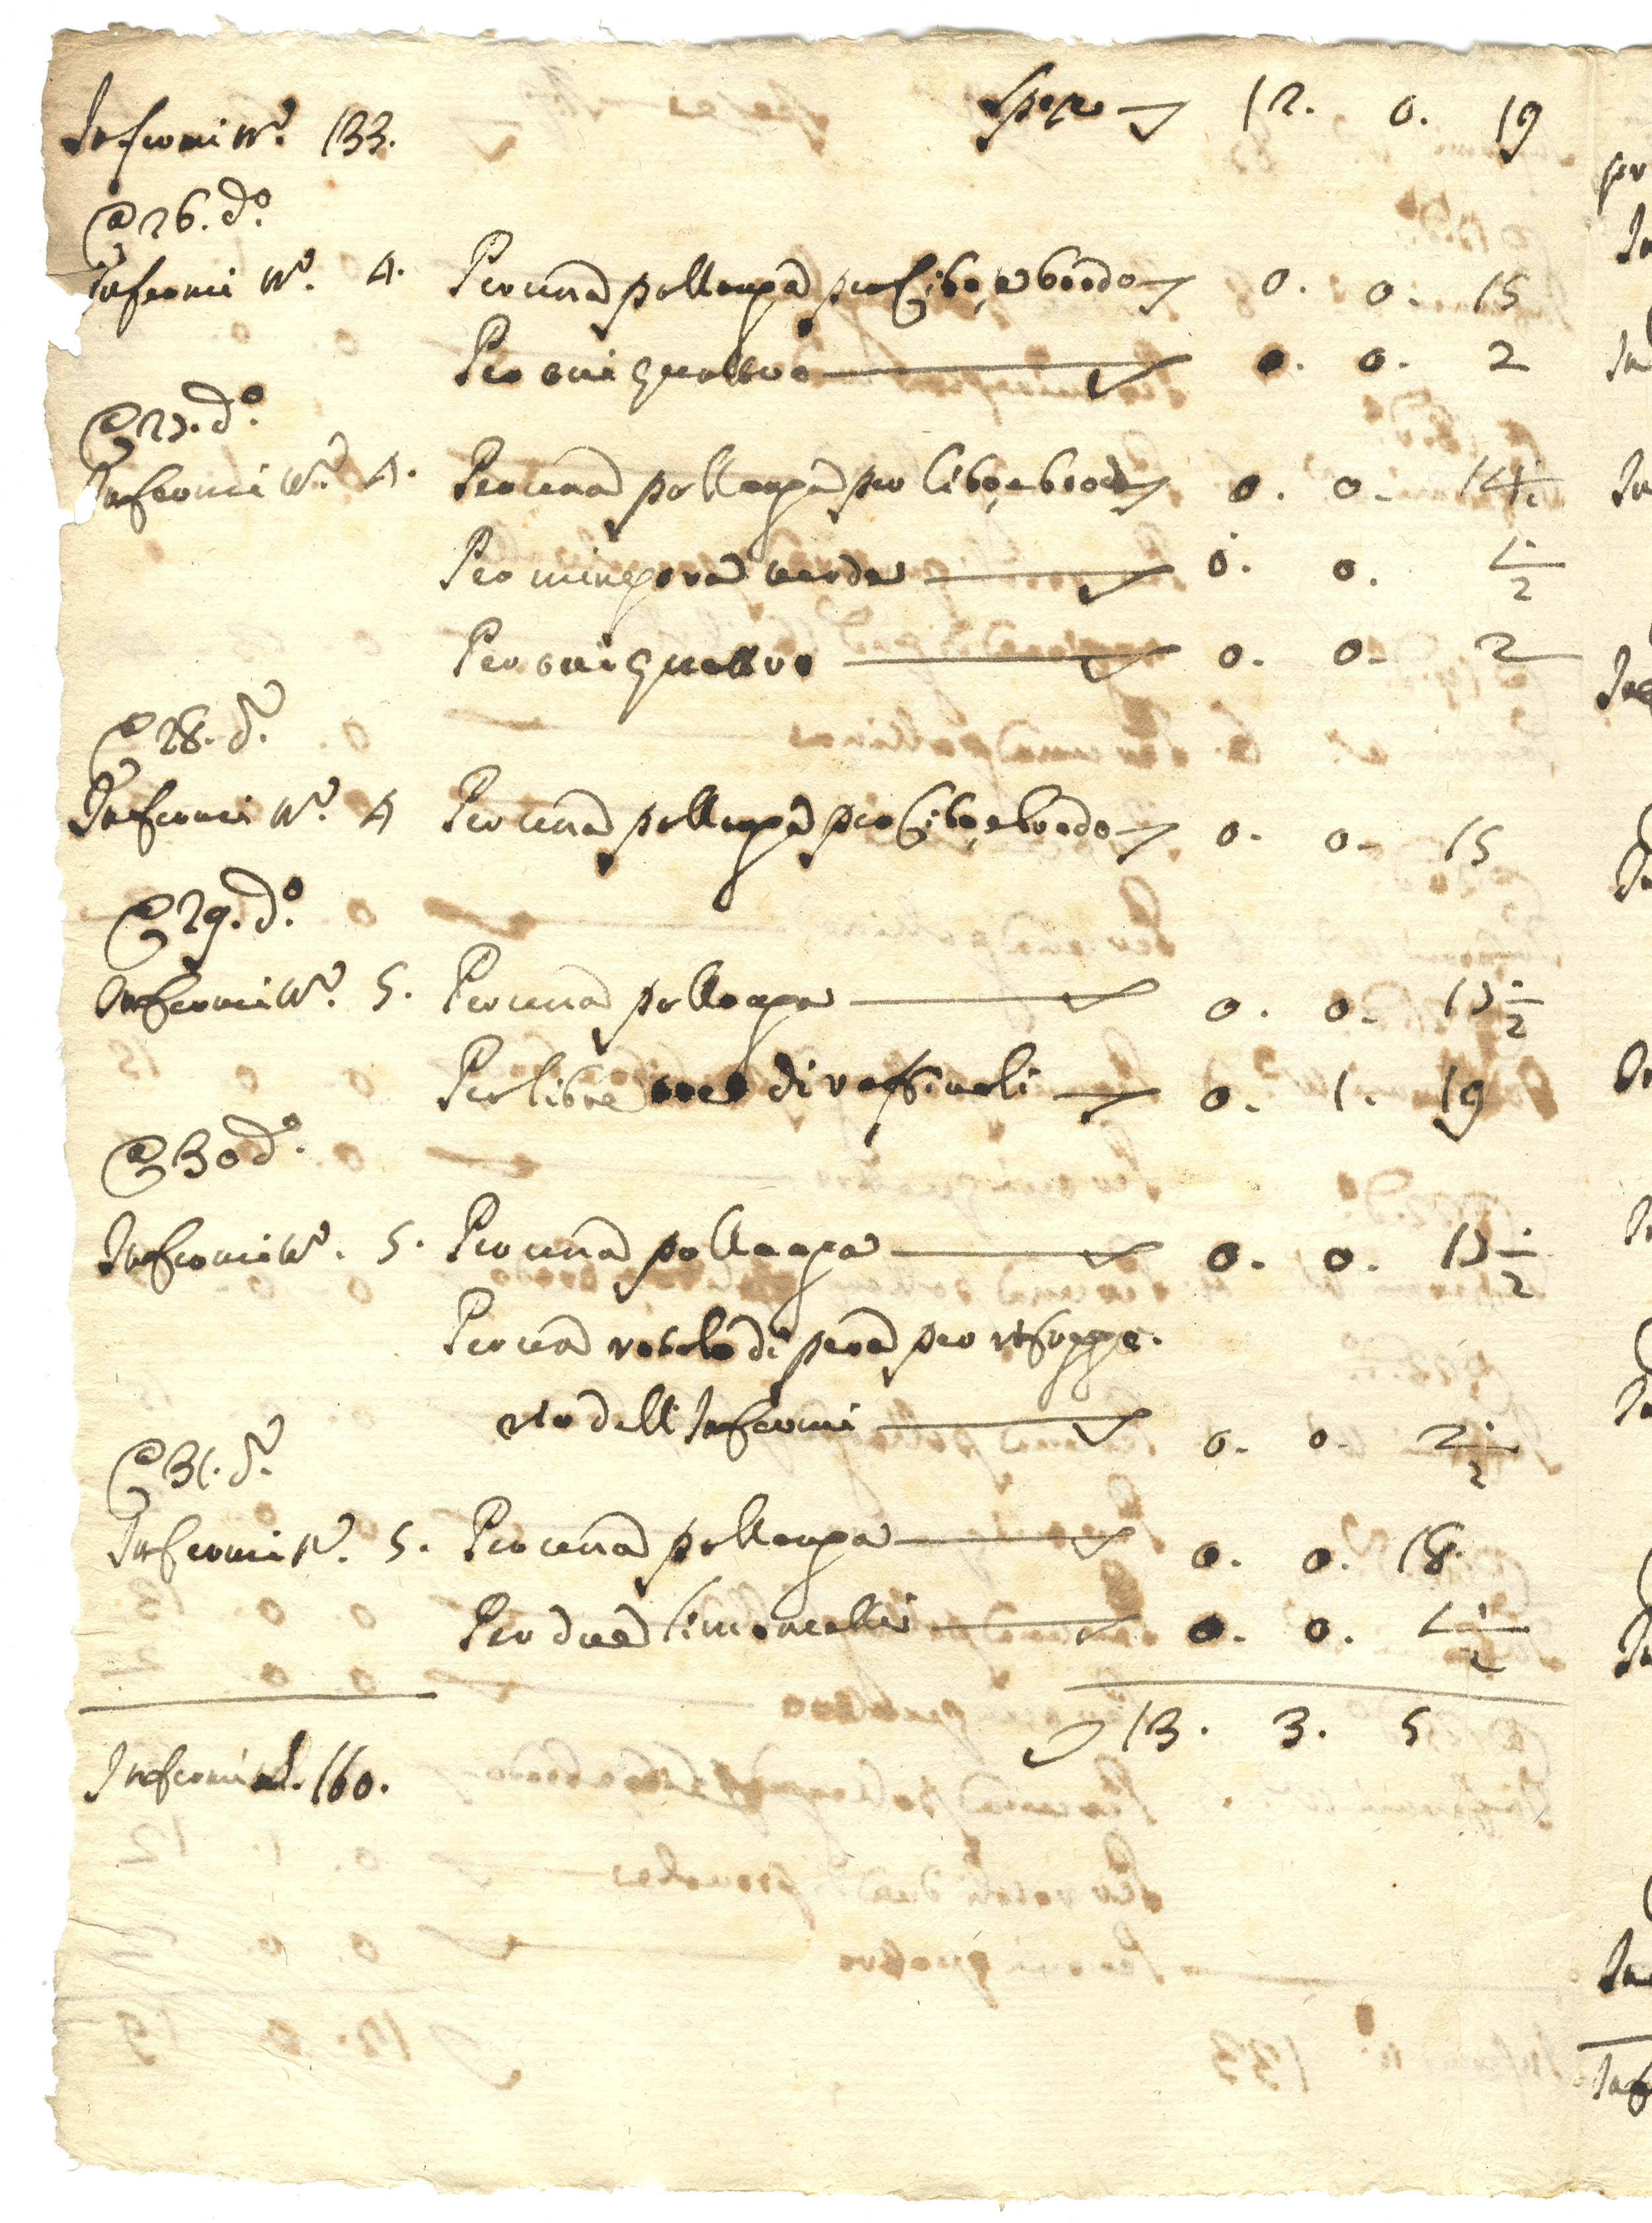 Spese 12. 0. 19
Infermi N.° 133.
A 26. d.°
Infermi N.° 4. Per una pollanga per Cibo, e brodo 0. 0. 15
Per ovi quattro 0. 0. 2
A 27. d.°
Infermi N.° 4. Per una pollanga per Cibo, e brodo 0. 0. 14½
Per verde 0. 0. 1½
Per ovi quattro 0. 0. 2
A 28. d.°
Infermi N.° 4 Per una pollanga per Cibo, e brodo 0. 0. 15
A 29. d.°
Infermi N.° 5. Per una pollanga 0. 0. 17½
Per libre tre di raffiuoli 0. 1. 19
A 30 d.°
Infermi N.° 5. Per una pollanga 0. 0. 17½
Per un rotolo di pera per rifrigge-
rio dell Infermi 0. 0. 2½
A 31. d.°
Infermi N.° 5. Per una pollanga 0. 0. 18.
Per due limoncelli 0. 0. 1½
13. 3. 5
Infermi N. 160.